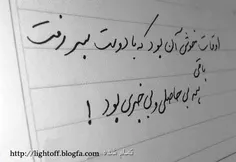 اوقات خوش آن بود که با دوست بسر رفت
باقی
همه بی حاصلی و بی خبری بود !
http://lightoff.blogfa.com